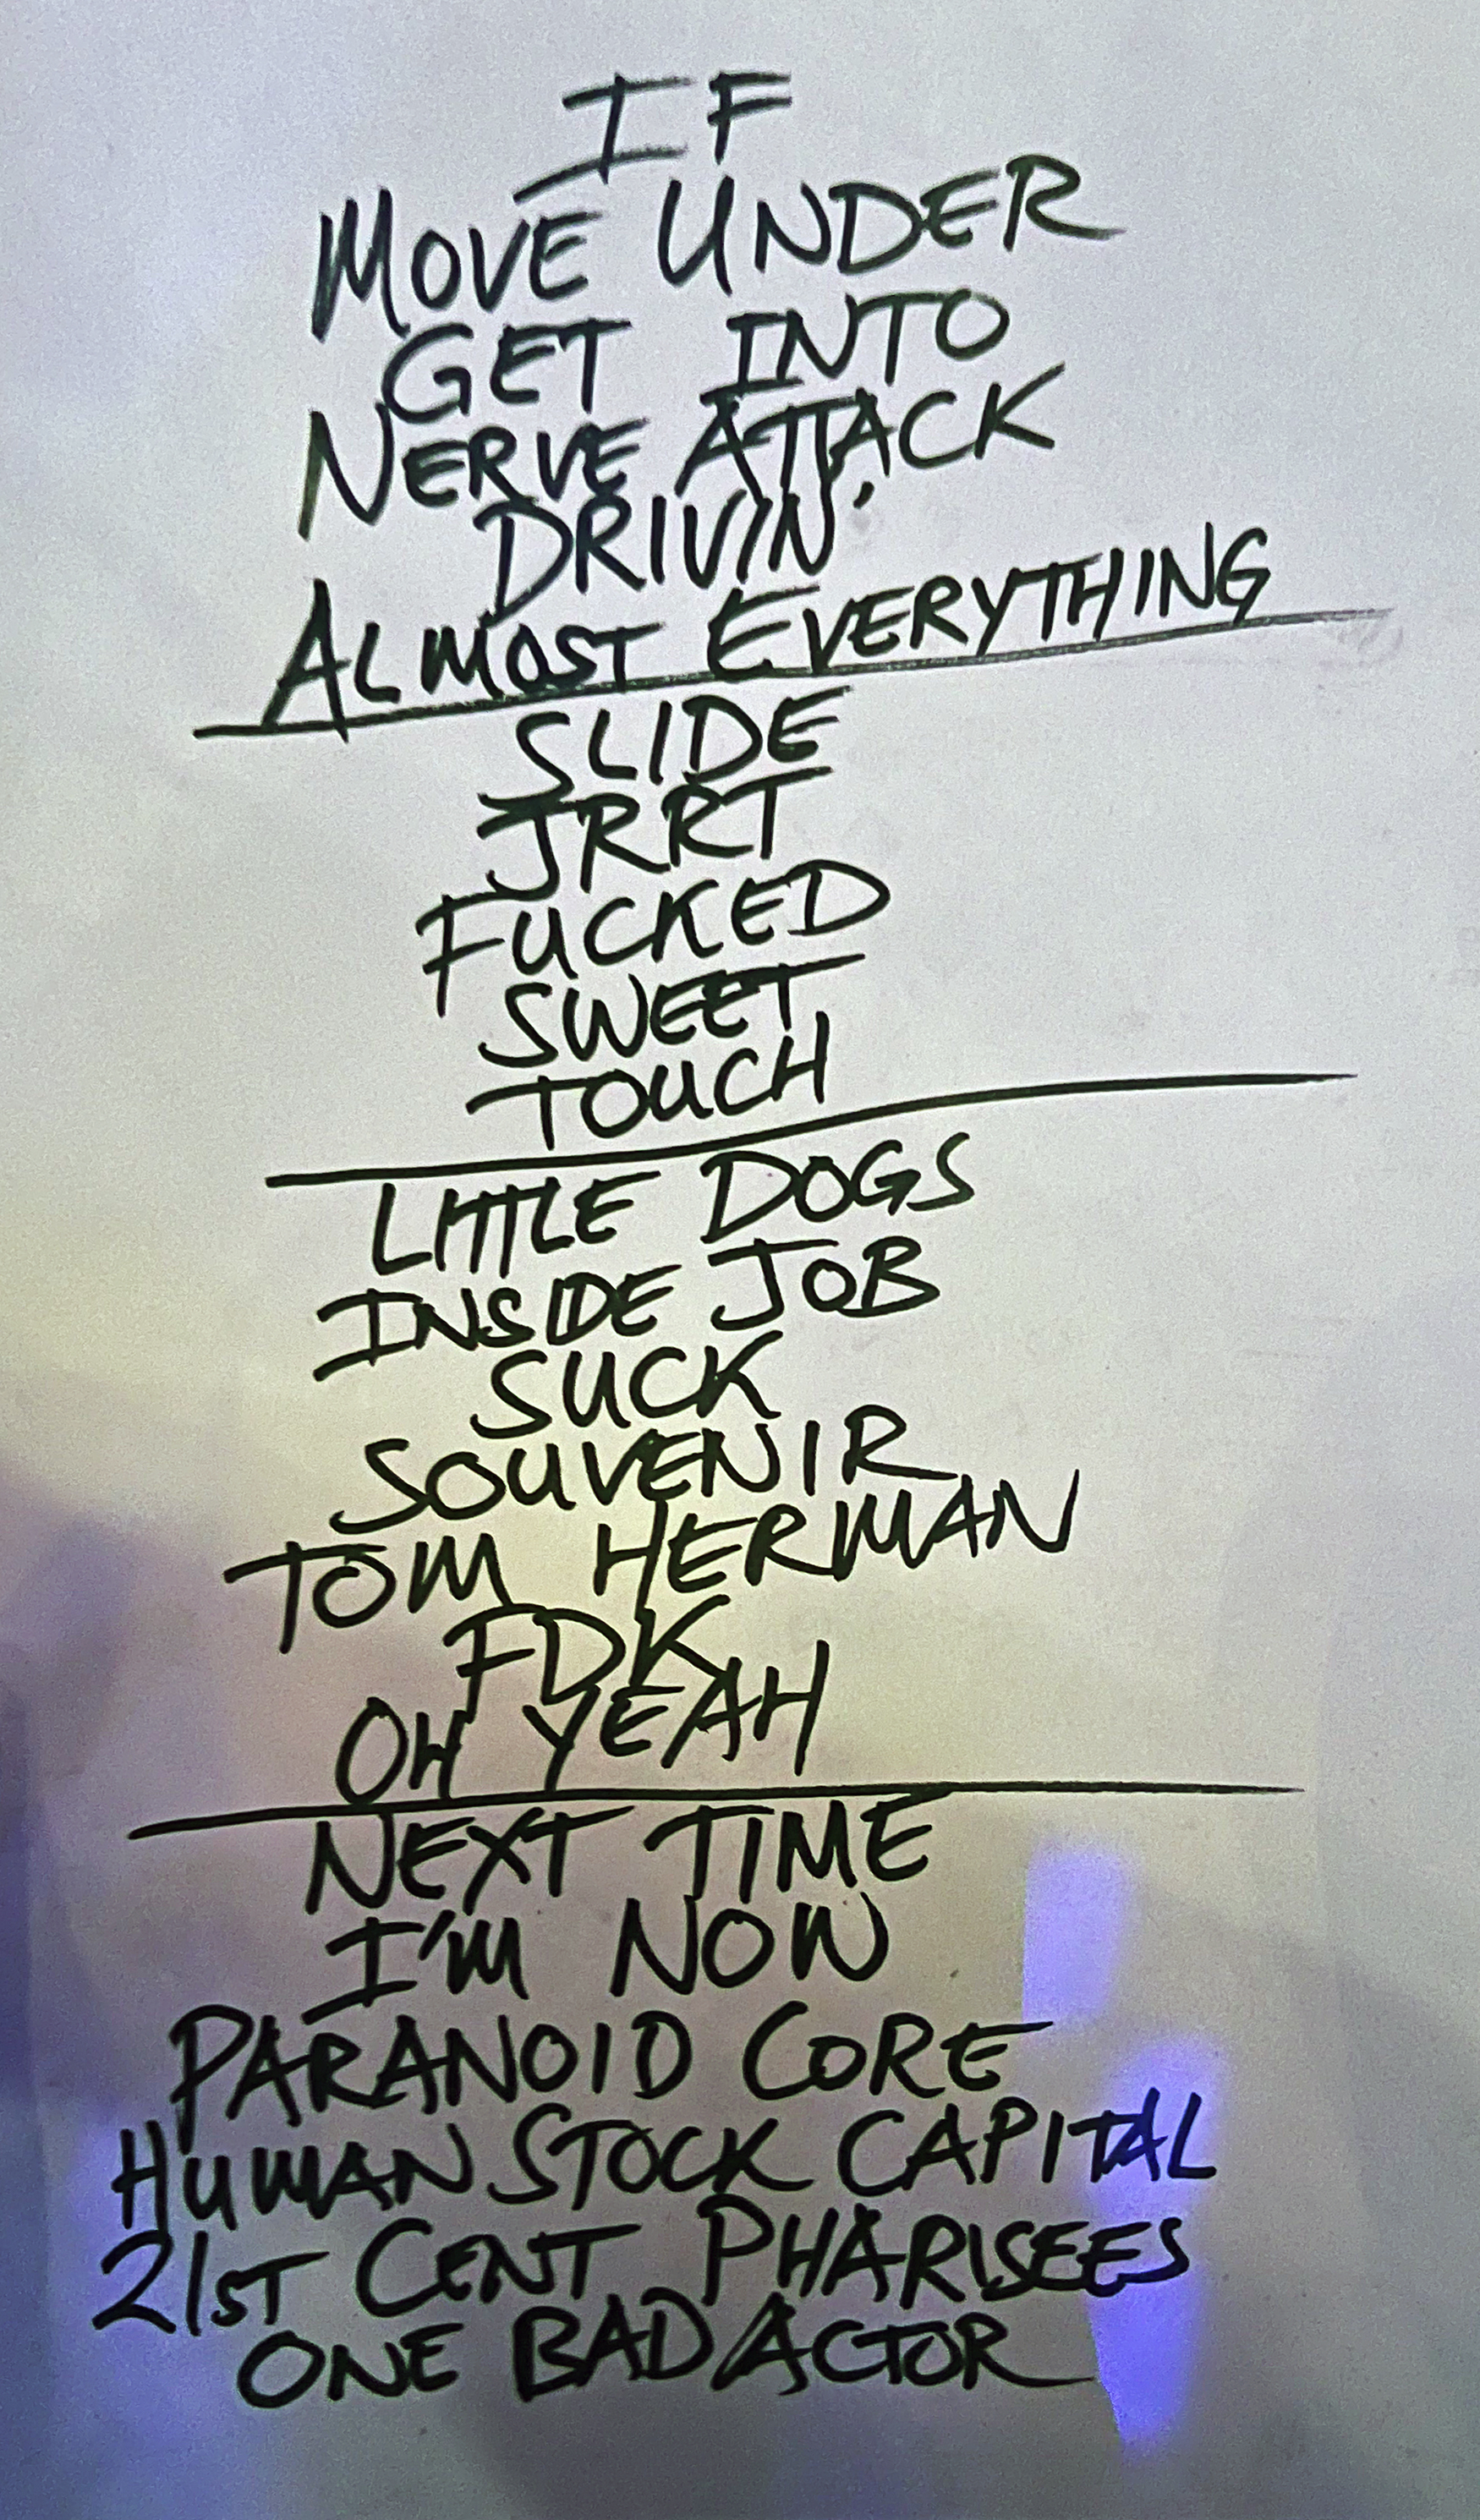 IF
MOVE UNDER
GET INTO
NERVE ATTACK
DRIVIN'
ALMOST EVERYTHING
SLIDE
JRRT
FUCKED
SWEET
TOUCH
LITTLE DOGS
INSIDE JOB
SUCK
SOUVENIR
TOM HERMAN
FDK
OH YEAH
NEXT TIME
I'M NOW
PARANOID CORE
HUMAN STOCK CAPITAL
21ST CENT PHARISEES
ONE BAD ACTOR